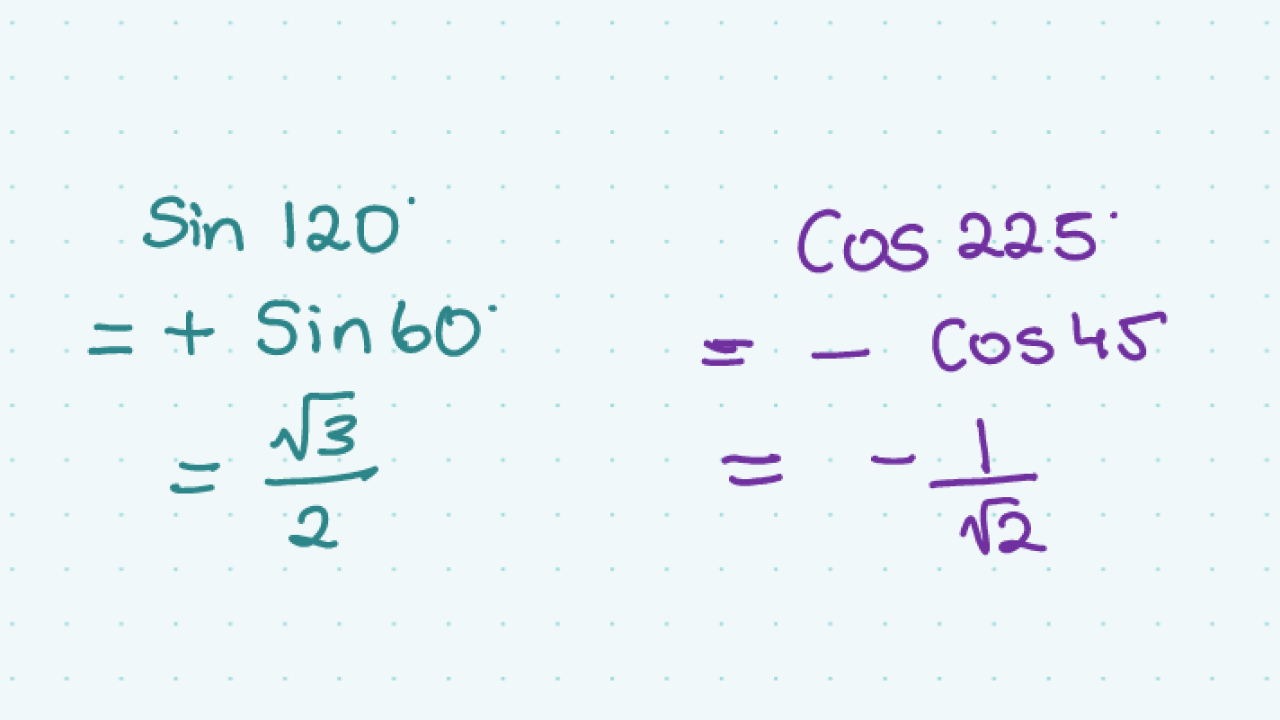 Sin 120°
= + Sin 60°
= √3/2
Cos 225°
= - Cos 45
= - 1/√2